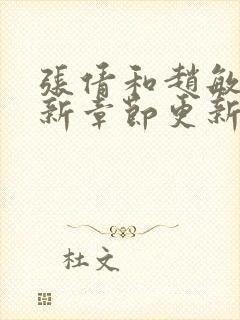 張倩和趙敏
新章節更新
杜文